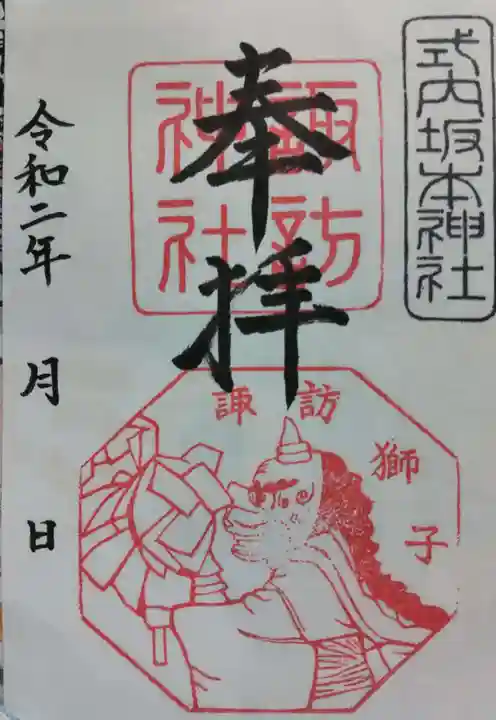 式内坂本神社
諏訪
神社
奉拝
諏訪獅子
令和二年 月 日